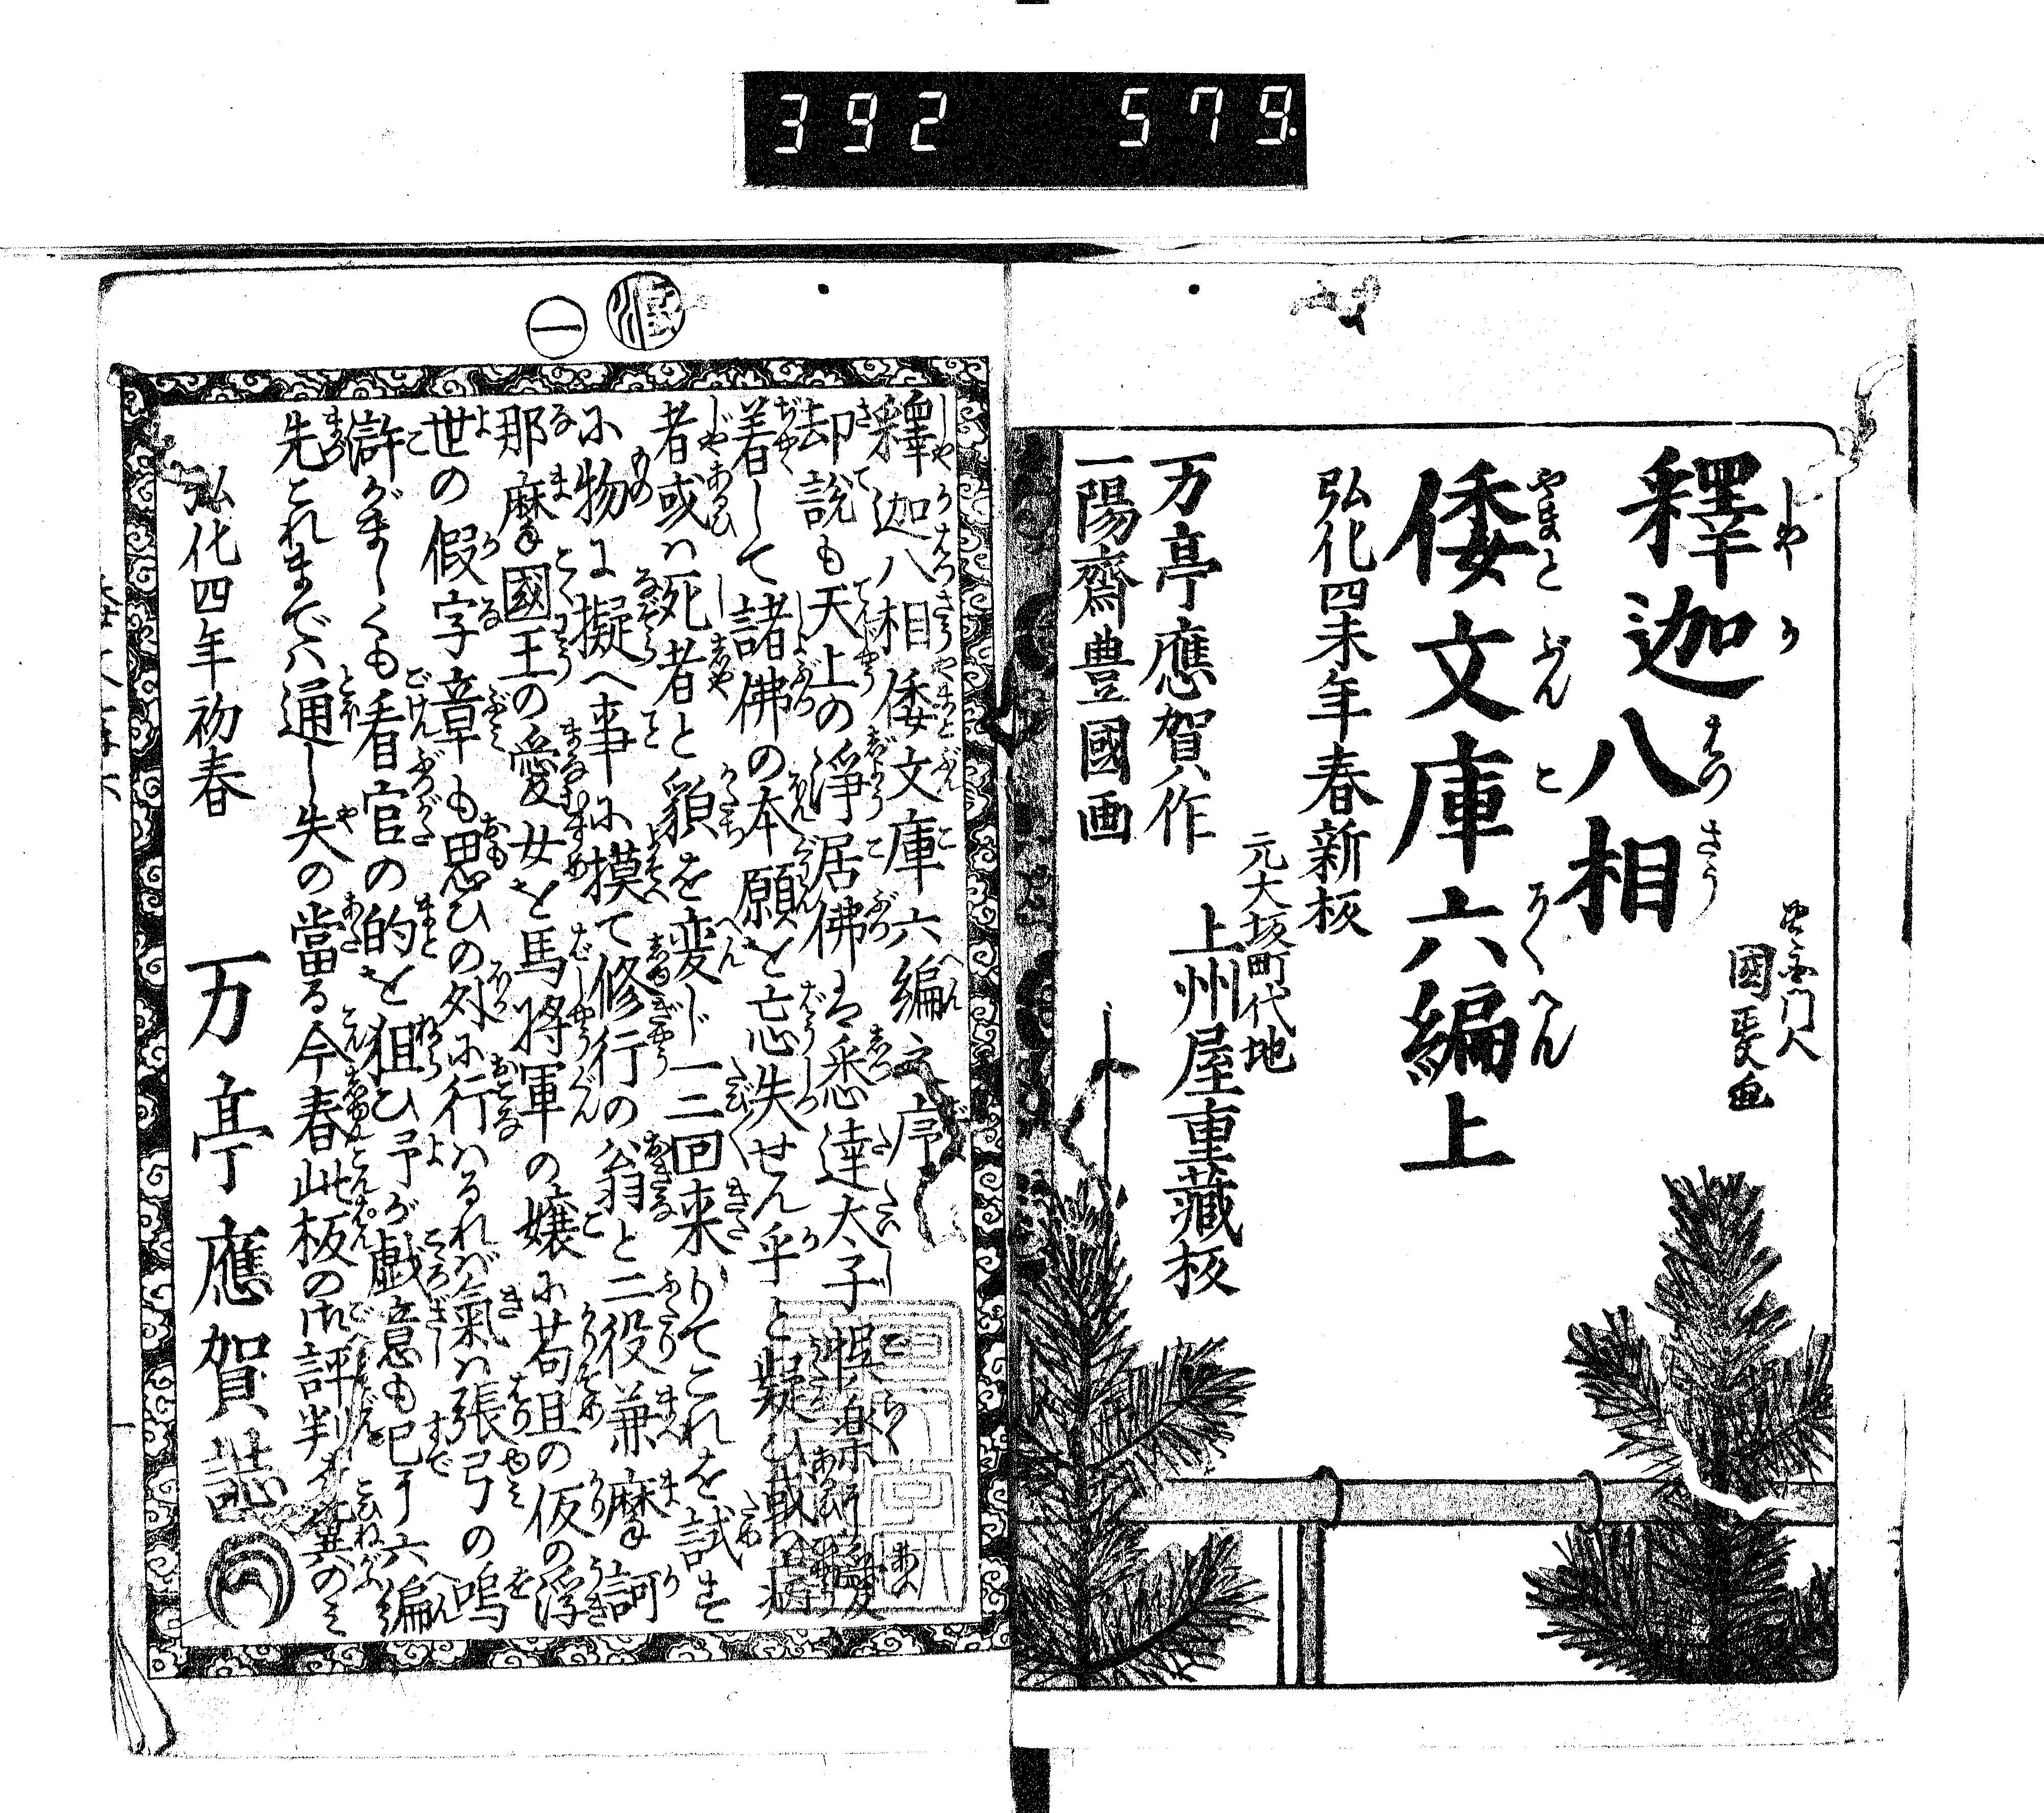 392 579
釋迦八相
倭文庫六編上
國長画
弘化四未年春新板
元大坂町代地
上州屋重藏板
万亭應賀作
一陽齋豊國画
一
釋迦八相倭文庫六編之序
却説も天上の淨居佛は悉達太子
着して諸佛の本願を忘失せん乎と疑ひ或へ
者或ハ死者と貌を変じ一二三回来りてこれを試す
に物に擬へ事に摸て修行の翁と二役兼摩訶
那摩國王の愛女を馬将軍の嬢に苟且の仮の浮
世の假字章も思ひの外に行ハるれバ氣ハ張弓の嗚
滸がましくも看官の的を狙ひ予が戯意も已に六編
先これまでハ通し矢の當る今春此板の御評判を
弘化四年初春
万亭應賀誌